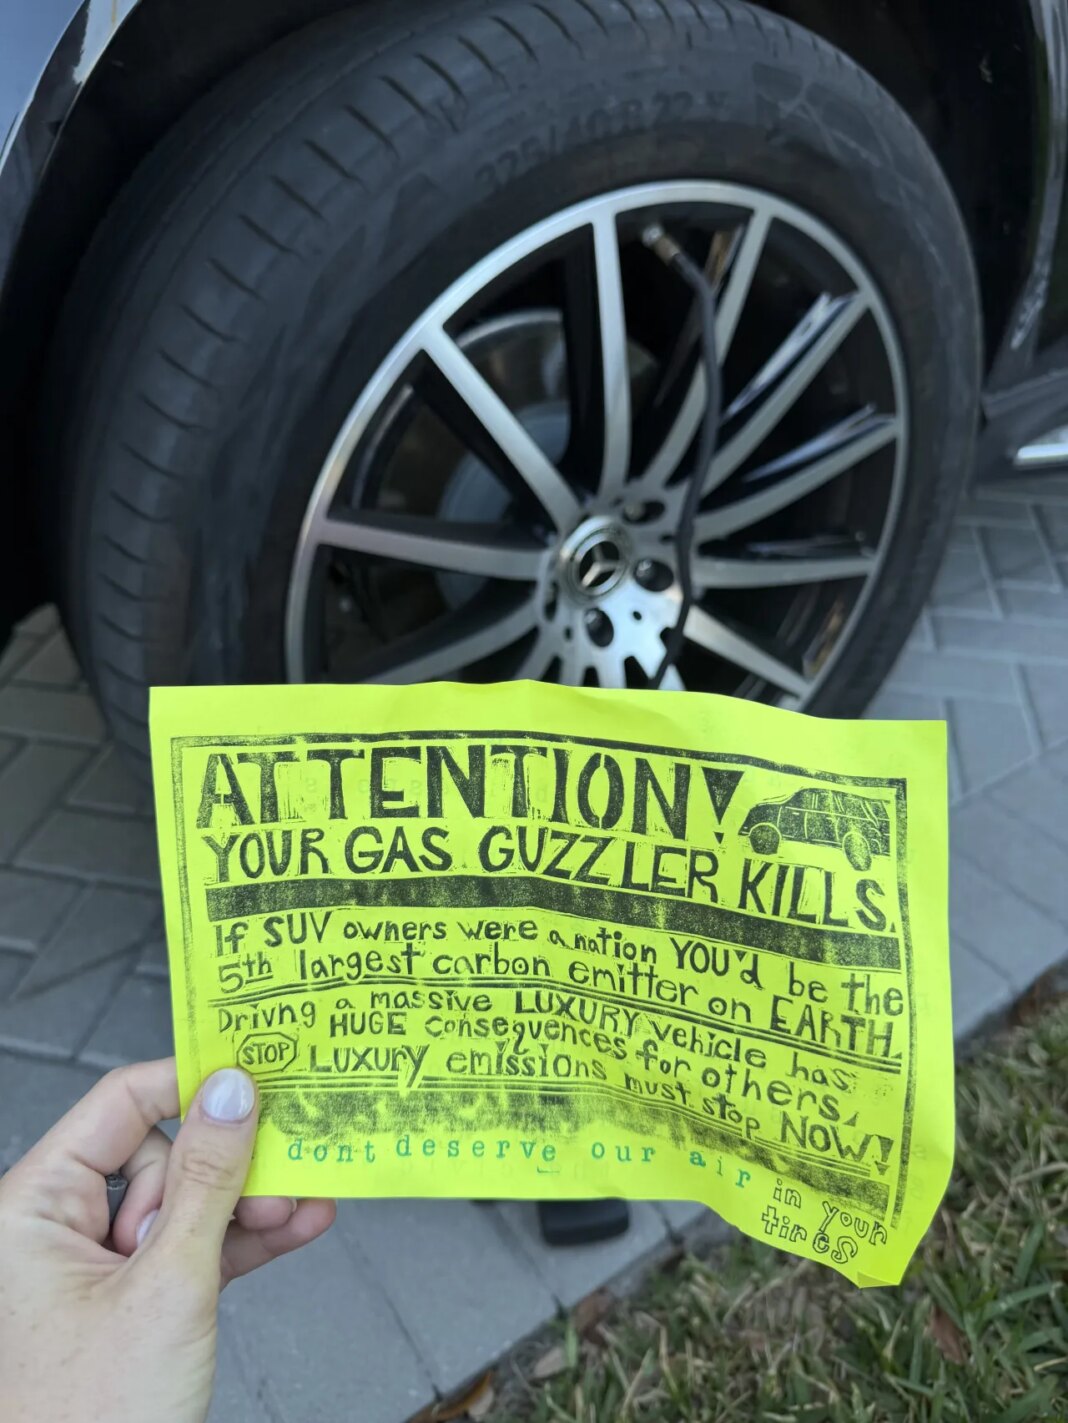 275/40R22
ATTENTION!
YOUR GAS GUZZLER KILLS.
If SUV owners were a nation YOU'd be the
5th largest carbon emitter on EARTH.
Drivng a massive LUXURY vehicle has
HUGE consequences for others.
STOP LUXURY emissions must stop NOW!
dont deserve our air
in your
tires